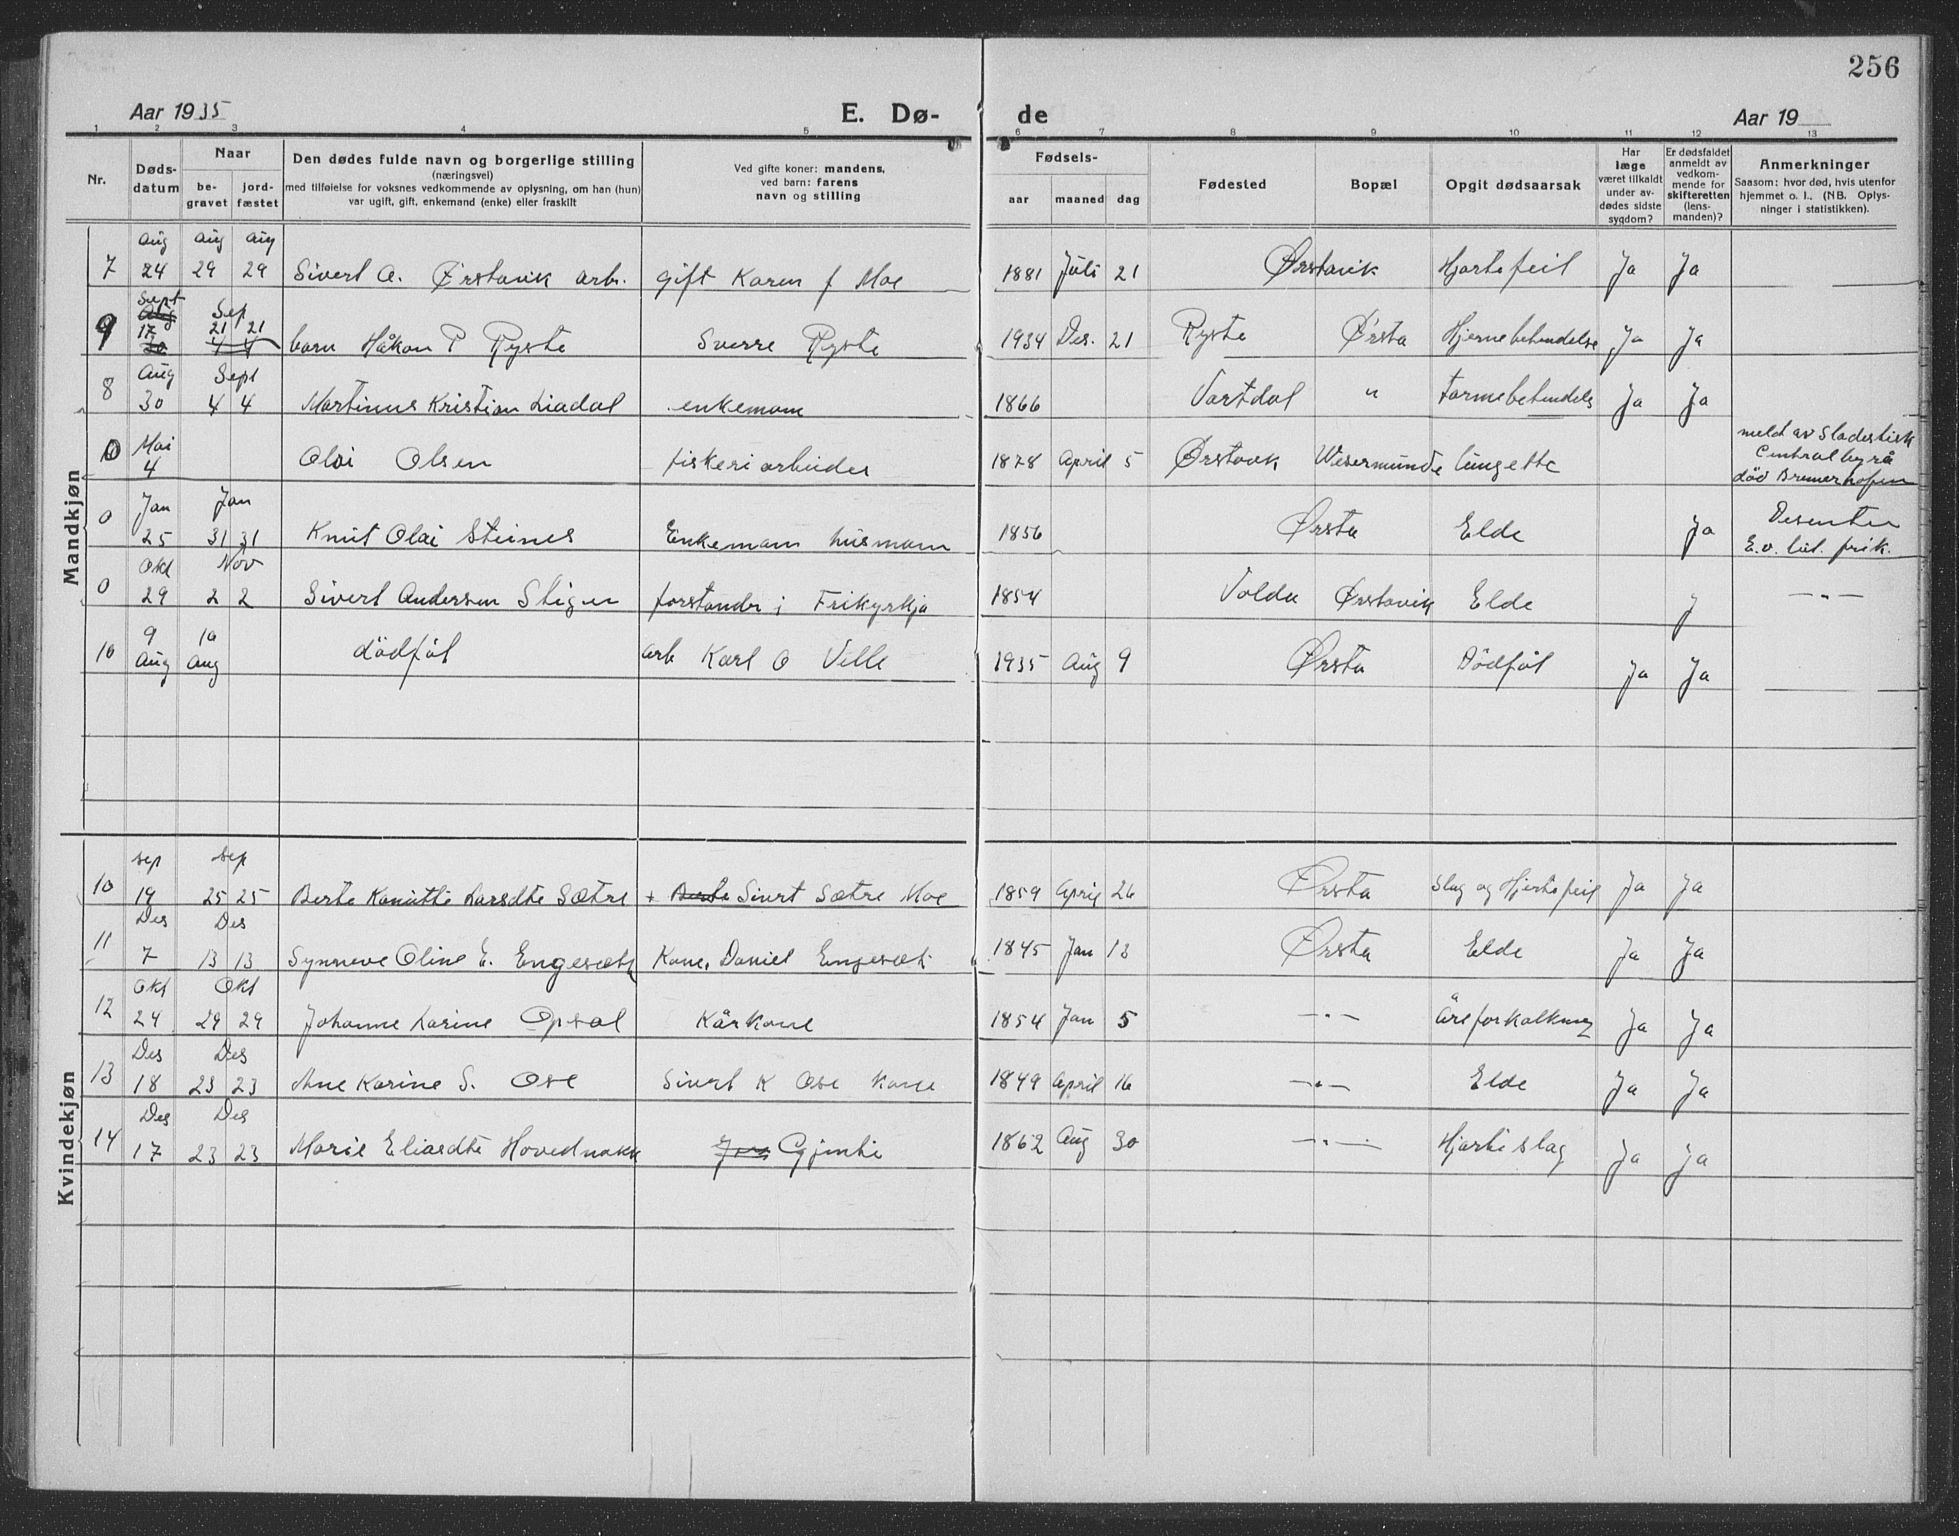 256
Aar 1935 E. Dø- de Aar 19
1 2 3 4 5 6 7 8 9 10 11 12 13
Nr. Døds-datum Naar be-gravet jord-fæstet
Den dødes fulde navn og borgerlige stilling
(næringsvei)
med tilføielse for voksnes vedkommende av oplysning, om han (hun)
var ugift, gift, enkemand (enke) eller fraskilt
Ved gifte koner: mandens,
ved barn: farens
navn og stilling
Fødsels- aar maaned dag
Fødested Bopæl Opgit dødsaarsak
Har læge været tilkaldt under av-dødes sidste sygdom?
Er dødsfaldet anmeldt av vedkom-mende for skifteretten (lens-manden)?
Anmerkninger
Saasom: hvor død, hvis utenfor
hjemmet o. l., (NB. Oplys-
ninger i statistikken).
Mandkjøn
7 Aug 24 Aug 29 Aug 29 Sivert A. Ørstavik arb. gift Karen f Moe 1881 Juli 21 Ørstavik Hjertefeil Ja Ja
9 Sept 17 Sep 21 21 barn Håkon P Ryste Sverre Ryste 1934 Des. 21 Ryste Ørsta Hjernebetendelse Ja Ja
8 Aug 30 Sept 4 4 Martinus Kristian Liadal enkemann 1866 Vartdal " Tarmebetendels Ja Ja
0 Mai 4 Olai Olsen fiskeriarbeider 1878 April 5 Ørstavik Wesermunde
meld av Stadestisk
Centralbyrå
död Bremerhafen
0 Jan 25 Jan 31 31 Knut Olai Steines Enkemann husmann 1856 Ørsta Elde Ja
E.v. lut. frik.
0 Okt 29 Nov 2 2 Sivert Andersen Stigen forstander i Frikyrkja 1854 Volda Ørstavik Elde J —"—
10 9 Aug 10 Aug dödföt arb Karl O Velle 1935 Aug 9 Ørsta Dödföt Ja Ja
Kvindekjøn
10 Sep 19 Sep 25 25 Berte Larsdte Sætre + Berte Sivert Sætre Moe 1859 April 26 Ørsta Slag og Hjertefeil Ja Ja
11 Des 7 Des 13 13 Synneve Oline E. Engesæth Kone, Daniel Engesæt 1845 Jan 13 Ørsta Elde Ja Ja
12 Okt 24 Okt 29 29 Johanne Karine Opsal Kårkone 1854 Jan 5 —"— Åreforkalkning Ja Ja
13 Des 18 Des 23 23 Ane Karine S. Ose Sivert K Ose kone 1849 April 16 —"— Elde Ja Ja
14 Des 17 Des 23 23 Marie Eliasdte Hovednakk 1862 Aug 30 —"— Hjerteslag Ja Ja